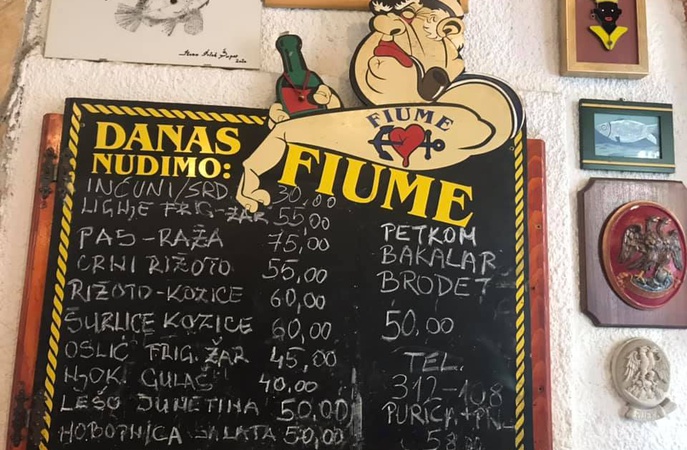 FIUME
DANAS
NUDIMO:
FIUME
INĆUNI/SRD 30,00
LIGNJE FRIG-ŽAR 55,00
PAS-RAŽA 75,00
CRNI RIŽOTO 55,00
RIŽOTO-KOZICE 60,00
ŠURLICE KOZICE 60,00
OSLIĆ FRIG. ŽAR 45,00
NJOK GULAŠ 40.00
LEŠO JUNETINA 50,00
HOBOTNICA SALATA 50,00
PETKOM
BAKALAR
BRODET
50.00
TEL.
312-108
PURICA+
58